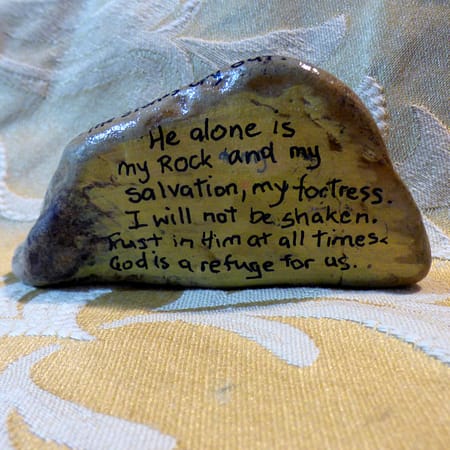 He alone is
my Rock and my
salvation, my fortress.
I will not be shaken.
Trust in Him at all times.
God is a refuge for us.